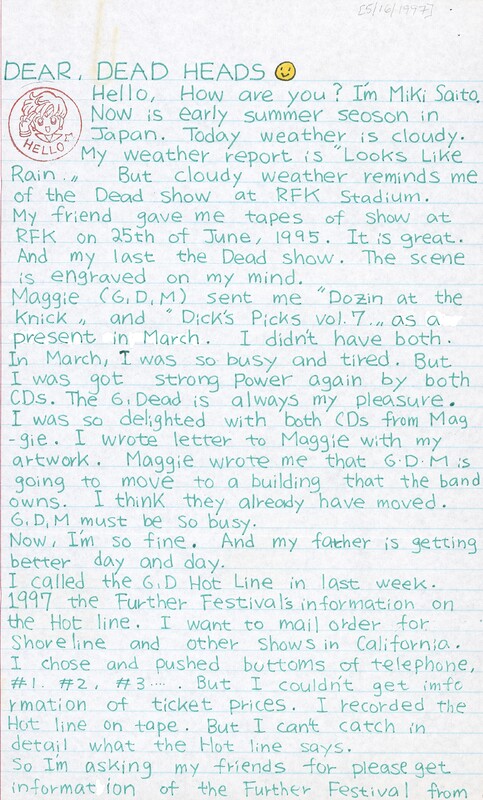 [5/16/1997]
DEAR, DEAD HEADS
Hello, How are you? I'm Miki Saito.
Now is early summer seoson in
Japan. Today weather is cloudy.
HELLO
My weather report is "Looks Like
Rain.„ But cloudy weather reminds me
of the Dead show at RFK Stadium.
My friend gave me tapes of show at
RFK on 25th of June, 1995. It is great.
And my last the Dead show. The scene
is engraved on my mind.
Maggie (G,D,M) sent me "Dozin at the
Knick„ and "Dick's Picks vol.7.„ as a
present in March. I didn't have both.
In March, I was so busy and tired. But
I was got strong Power again by both
CDs. The G.Dead is always my pleasure.
I was so delighted with both CDs from Mag
-gie. I wrote letter to Maggie with my
artwork. Maggie wrote me that G.D.M is
going to move to a building that the band
owns. I think they already have moved.
G,D,M must be so busy.
Now, I'm so fine. And my father is getting
better day and day.
I called the G.D Hot Line in last week.
1997 the Further Festival's information on
the Hot line. I want to mail order for
Shoreline and other shows in California.
I chose and pushed buttoms of telephone,
#1. #2, #3.... . But I couldn't get imfo
rmation of ticket prices. I recorded the
Hot line on tape. But I can't catch in
detail what the Hot line says.
So I'm asking my friends for please get
information of the Further Festival from